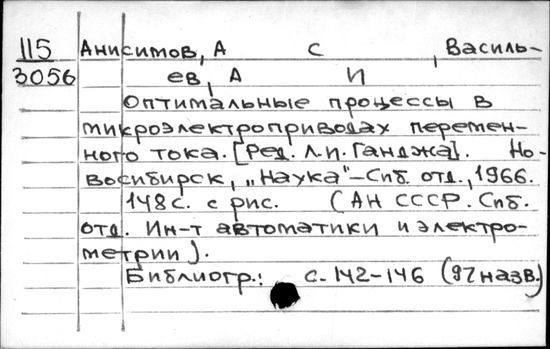 115 Анисимов, А С , Василь-
3056 ев, А И
Оптимальные процессы в
микроэлектроприводах перемен-
ного тока. [Ред. Л.П. Ганджа]. Но-
восибирск, „Наука"-Сиб. отд., 1966.
148 с. с рис. (АН СССР. Сиб.
отд. Ин-т автоматики и электро-
метрии).
Библиогр.: с. 142-146 (97 назв.)